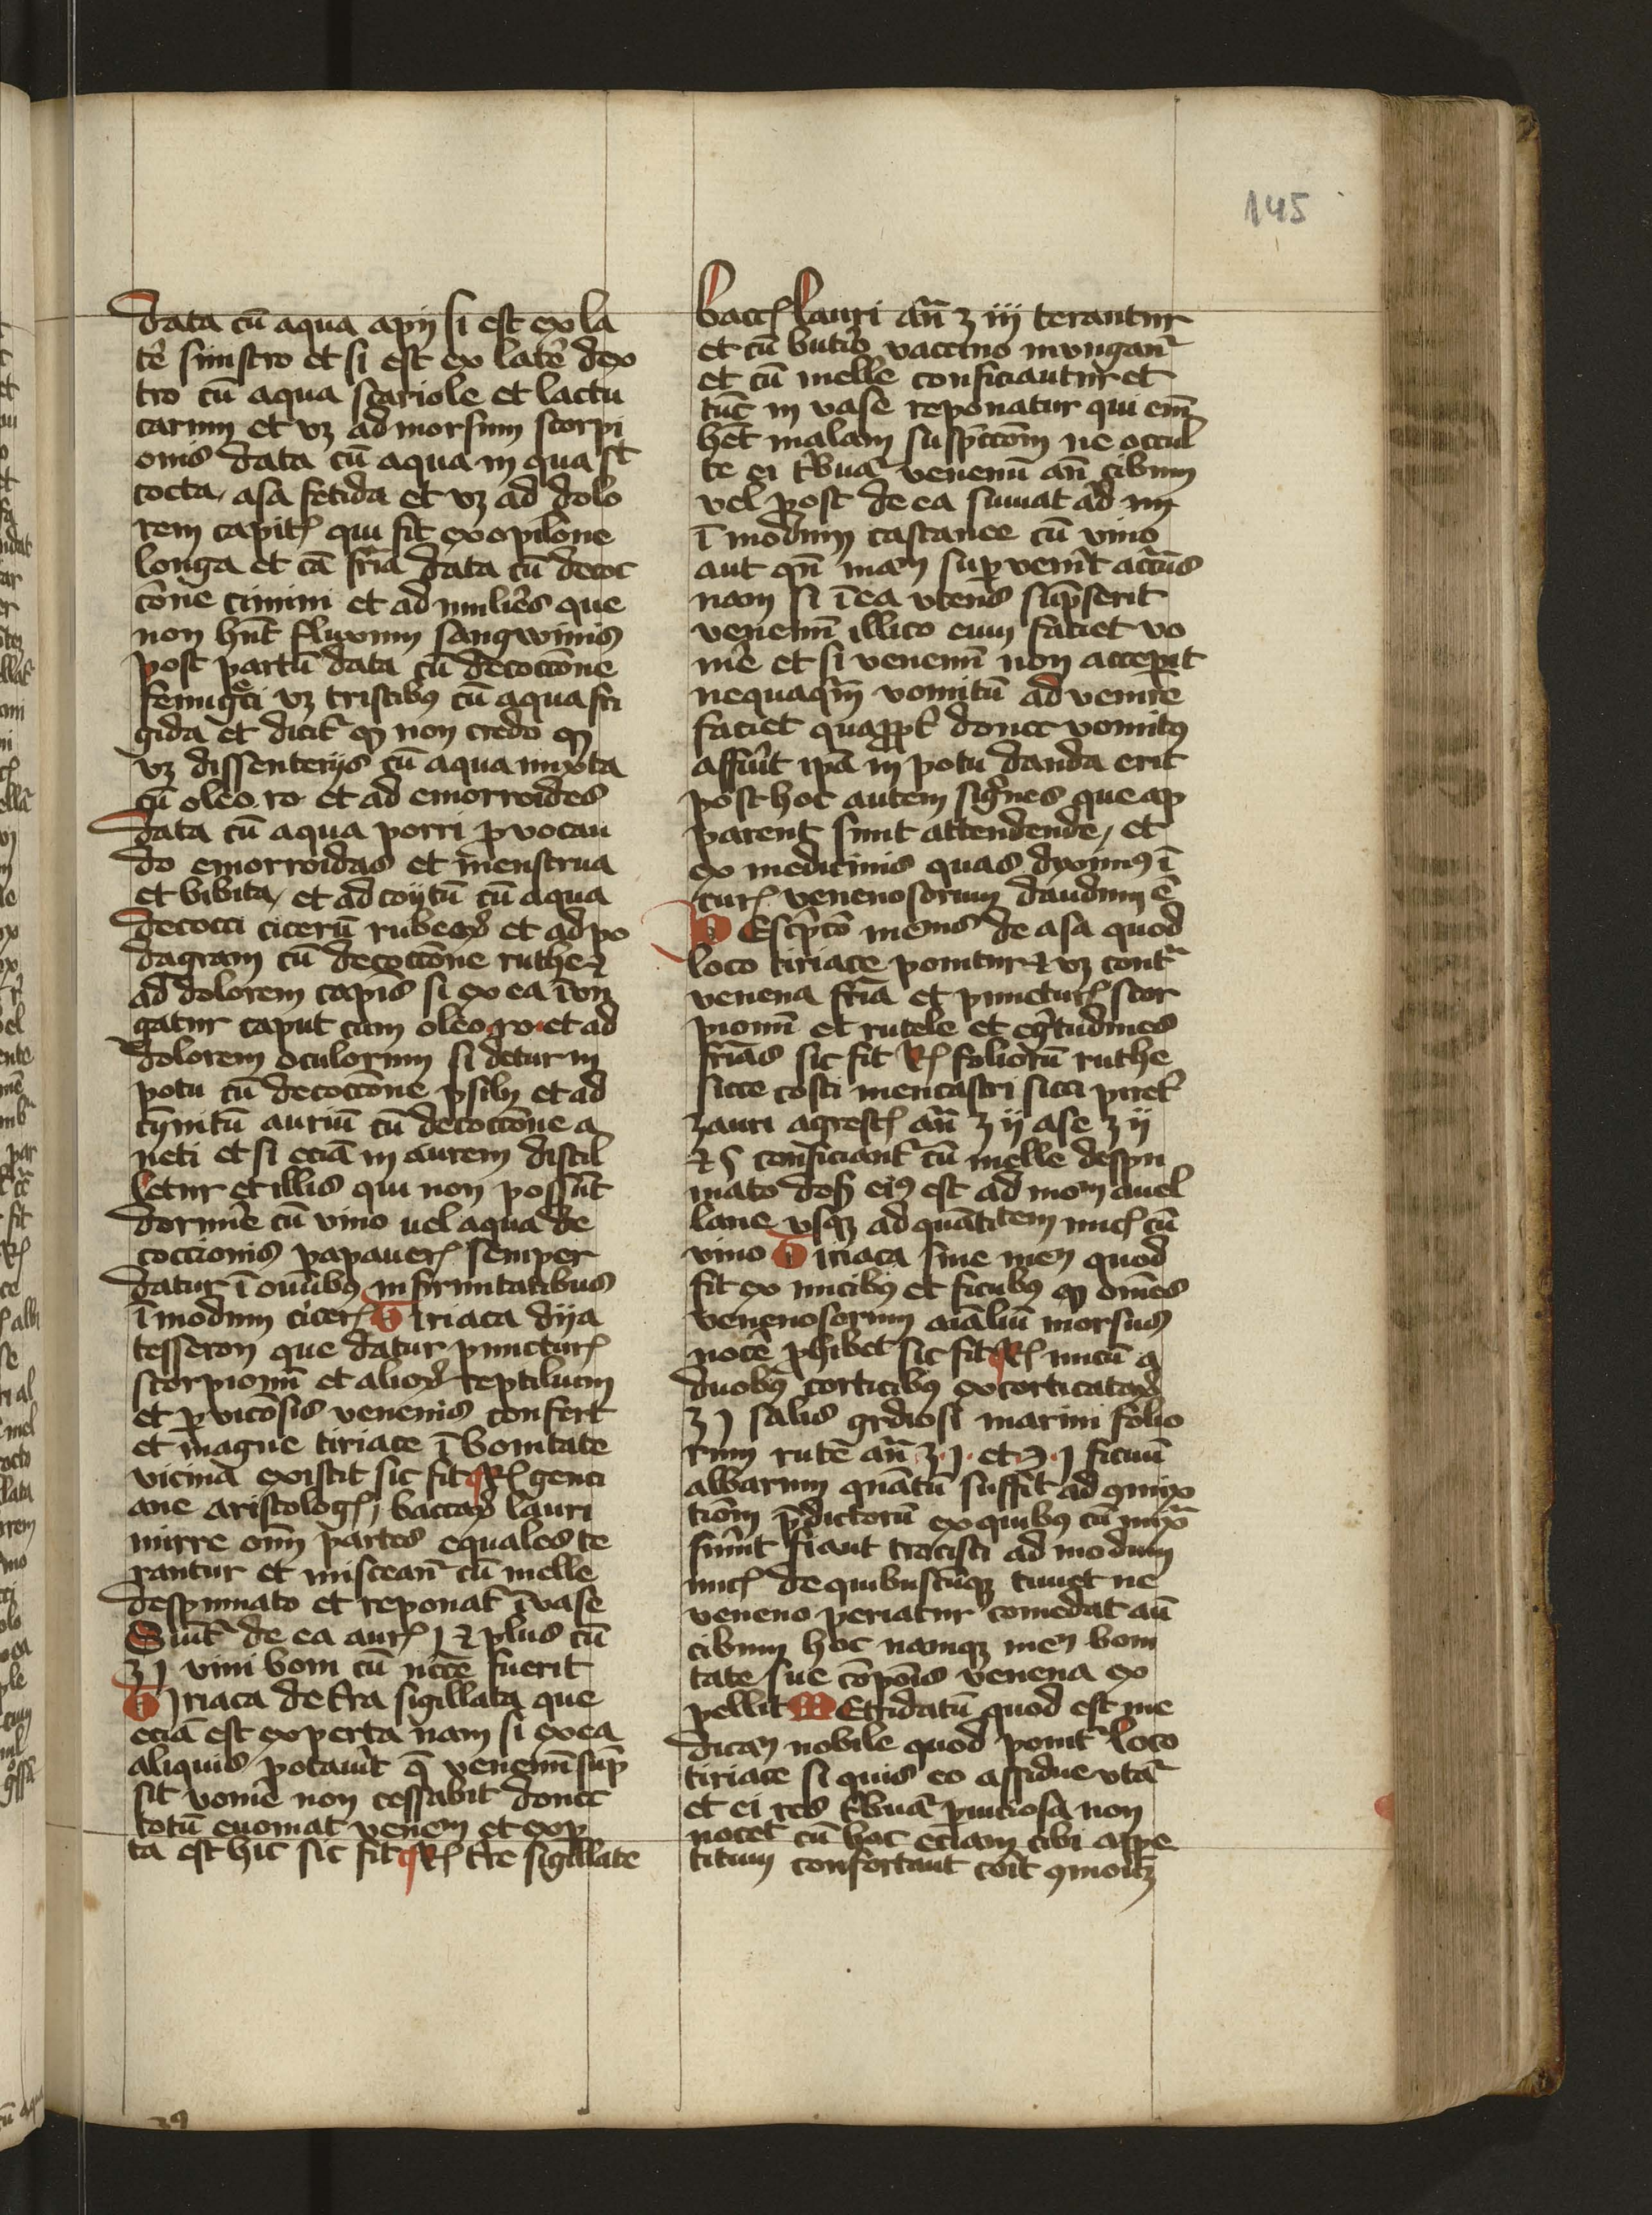 145
data cū aqua apij si est ex la
tē sinistro et si est ex latē dex
tro cū aqua scariole et lactu
carum et vꝫ ad morsum scorpi
onis data cū aqua in qua st̄
cocta asa fetida et vꝫ ad dolo
rem capitꝭ qui fit ex opilōne
longa et cā frīa data cū decoc
cōne cimini et ad mulierēs que
non hn̄t fluxum sangwinis
post partū data cū decoccōne
fenugͤci vꝫ tristibꝯ cū aqua fri
gida et dicit̄ ꝙ non credo ꝙ
vꝫ dissenterijs cū aqua mixta
cū oleo ro et ad emorroides
data cū aqua porri ꝓvocan
do emorroidas et menstrua
et bibita et ad coytū cū aqua
decocti cicerū rubeoꝝ et ad po
dagram cū decoccōne ruthe ⁊
ad dolorem capis si ex ea īvn
gatur caput cum oleo ro et ad
dolorem oculorum si detur in
potu cū decoccōne psilij et ad
tynitū auriū cū decoccōne a
neti et si eciā in aurem distil
letur et illis qui non possūt
dormīe cū vino uel aqua de
coccionis papauerꝭ semper
datur ī om̄ibꝯ infirmitatibus
ī modum cicerꝭ Tiriaca dya
tesseron que datur puncturꝭ
scorpionū et alioꝝ reptilium
et ꝑnicōsis venenis confert
et magne tiriace ī bonitate
vicina existit sic fit ℞ genci
ane aristologꝭ baccaꝝ lauri
mirre om̄ partes equales te
rantur et miscean̄t cū melle
despumato et reponat̄ ī vase
Sum̄t de ea aurꝭ j ⁊ plus cū
ʒ j vini boni cū necc̄e fuerit
Tiriaca de t̄ra sigillata que
eciā est experta nam si ex ea
aliquis potauīt q̄ venenū sūp
sit vomē non cessabit donec
totū euomat venen̄ et exp
ta est hic sic fit ℞ tr̄e sigillate
baccꝭ lauri an̄ ʒ iij terantur
et cū butiro vaccino inungan̄t
et cū melle conficiantur et
tūc in vase reponatur qui em̄
het̄ malam suspiccōm ne occul
te ei tbuat̄ venenū an̄ cibum
vel post de ea sumat ad
ī modum castanee cū vino
aut qn̄ supervenīt
nam si ī ea vtens sūpserit
venenū illico eum faciet vo
mē et si venenū non acceperit
nequaqm̄ vomitū advenire
faciet donec vomitꝯ
affuīt ip̄a in potu danda erit
post hoc autem signes que ap
parent sunt attendende et
ex medicinis quas dyximꝯ ī
curꝭ venenosorum dandum ē
Descpcō de asa quod
loco tiriace ponitur ⁊ vꝫ cont̄
venena frīa et puncturꝭ scor
pionū et rutele et egritudines
frīas sic fit ℞ foliorū ruthe
sicce costi mentastri sicci piret̄
lauri agrestꝭ an̄ ʒ ij ase ʒ ij
⁊ s conficiant̄ cū melle despu
mato dosꝭ eiꝯ est ad mom̄ auel
lane vsqꝫ ad quātitem nucꝭ cū
vino Tiriaca siue quod
fit ex nucibꝯ et ficubꝯ ꝙ omēs
venenosorum aīaliū morsus
nocē ꝓhibet sic fit ℞ nucū a
duobꝯ corticibꝯ excorticataꝝ
ʒ j salis grdiosi marini folio
rum rutē an̄ ʒ j et ℈ j ficuū
albarum quātū suffīt ad ꝯmix
tiōm p̄dictorū ex quibꝯ cū mix̄
fuīnt fiant trocisci ad modum
nucꝭ de quibuscūqꝫ timet ne
veneno periatur comedat an̄
cibum hoc namqꝫ boni
tate sue cōpōis venena ex
pellit Metridatū quod est me
dican̄ nobile quod ponit̄ loco
tiriace si quis eo assidue vtāt̄
et ei res tbuat̄ ꝑniciosa non
nocet cū hac eciam cibi appe
titum confortant coīt